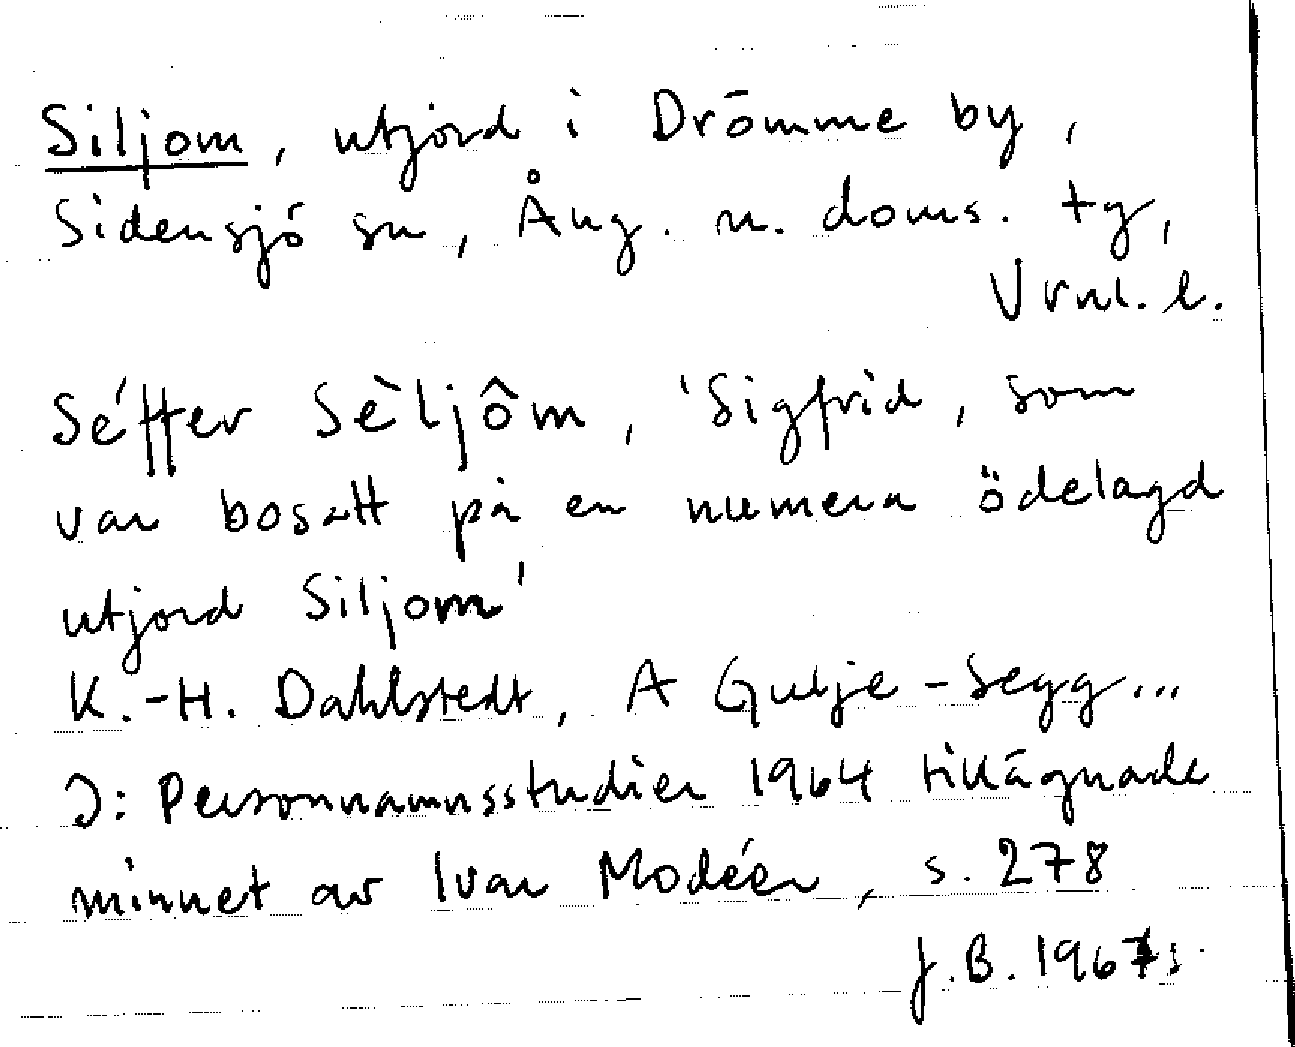 Siljom, utjord i Drömme by,
Sidensjö sn, Ång. n. doms. tg,
Vrnl. l.
Séffer Sèljôm, 'Sigfrid, som
var bosatt på en numera ödelagd
utjord Siljom'
K.-H. Dahlstedt, A Gulje-Segg...
I: Personnamnsstudier 1964 tillägnade
minnet av Ivar Modéer, s. 278
J.B.